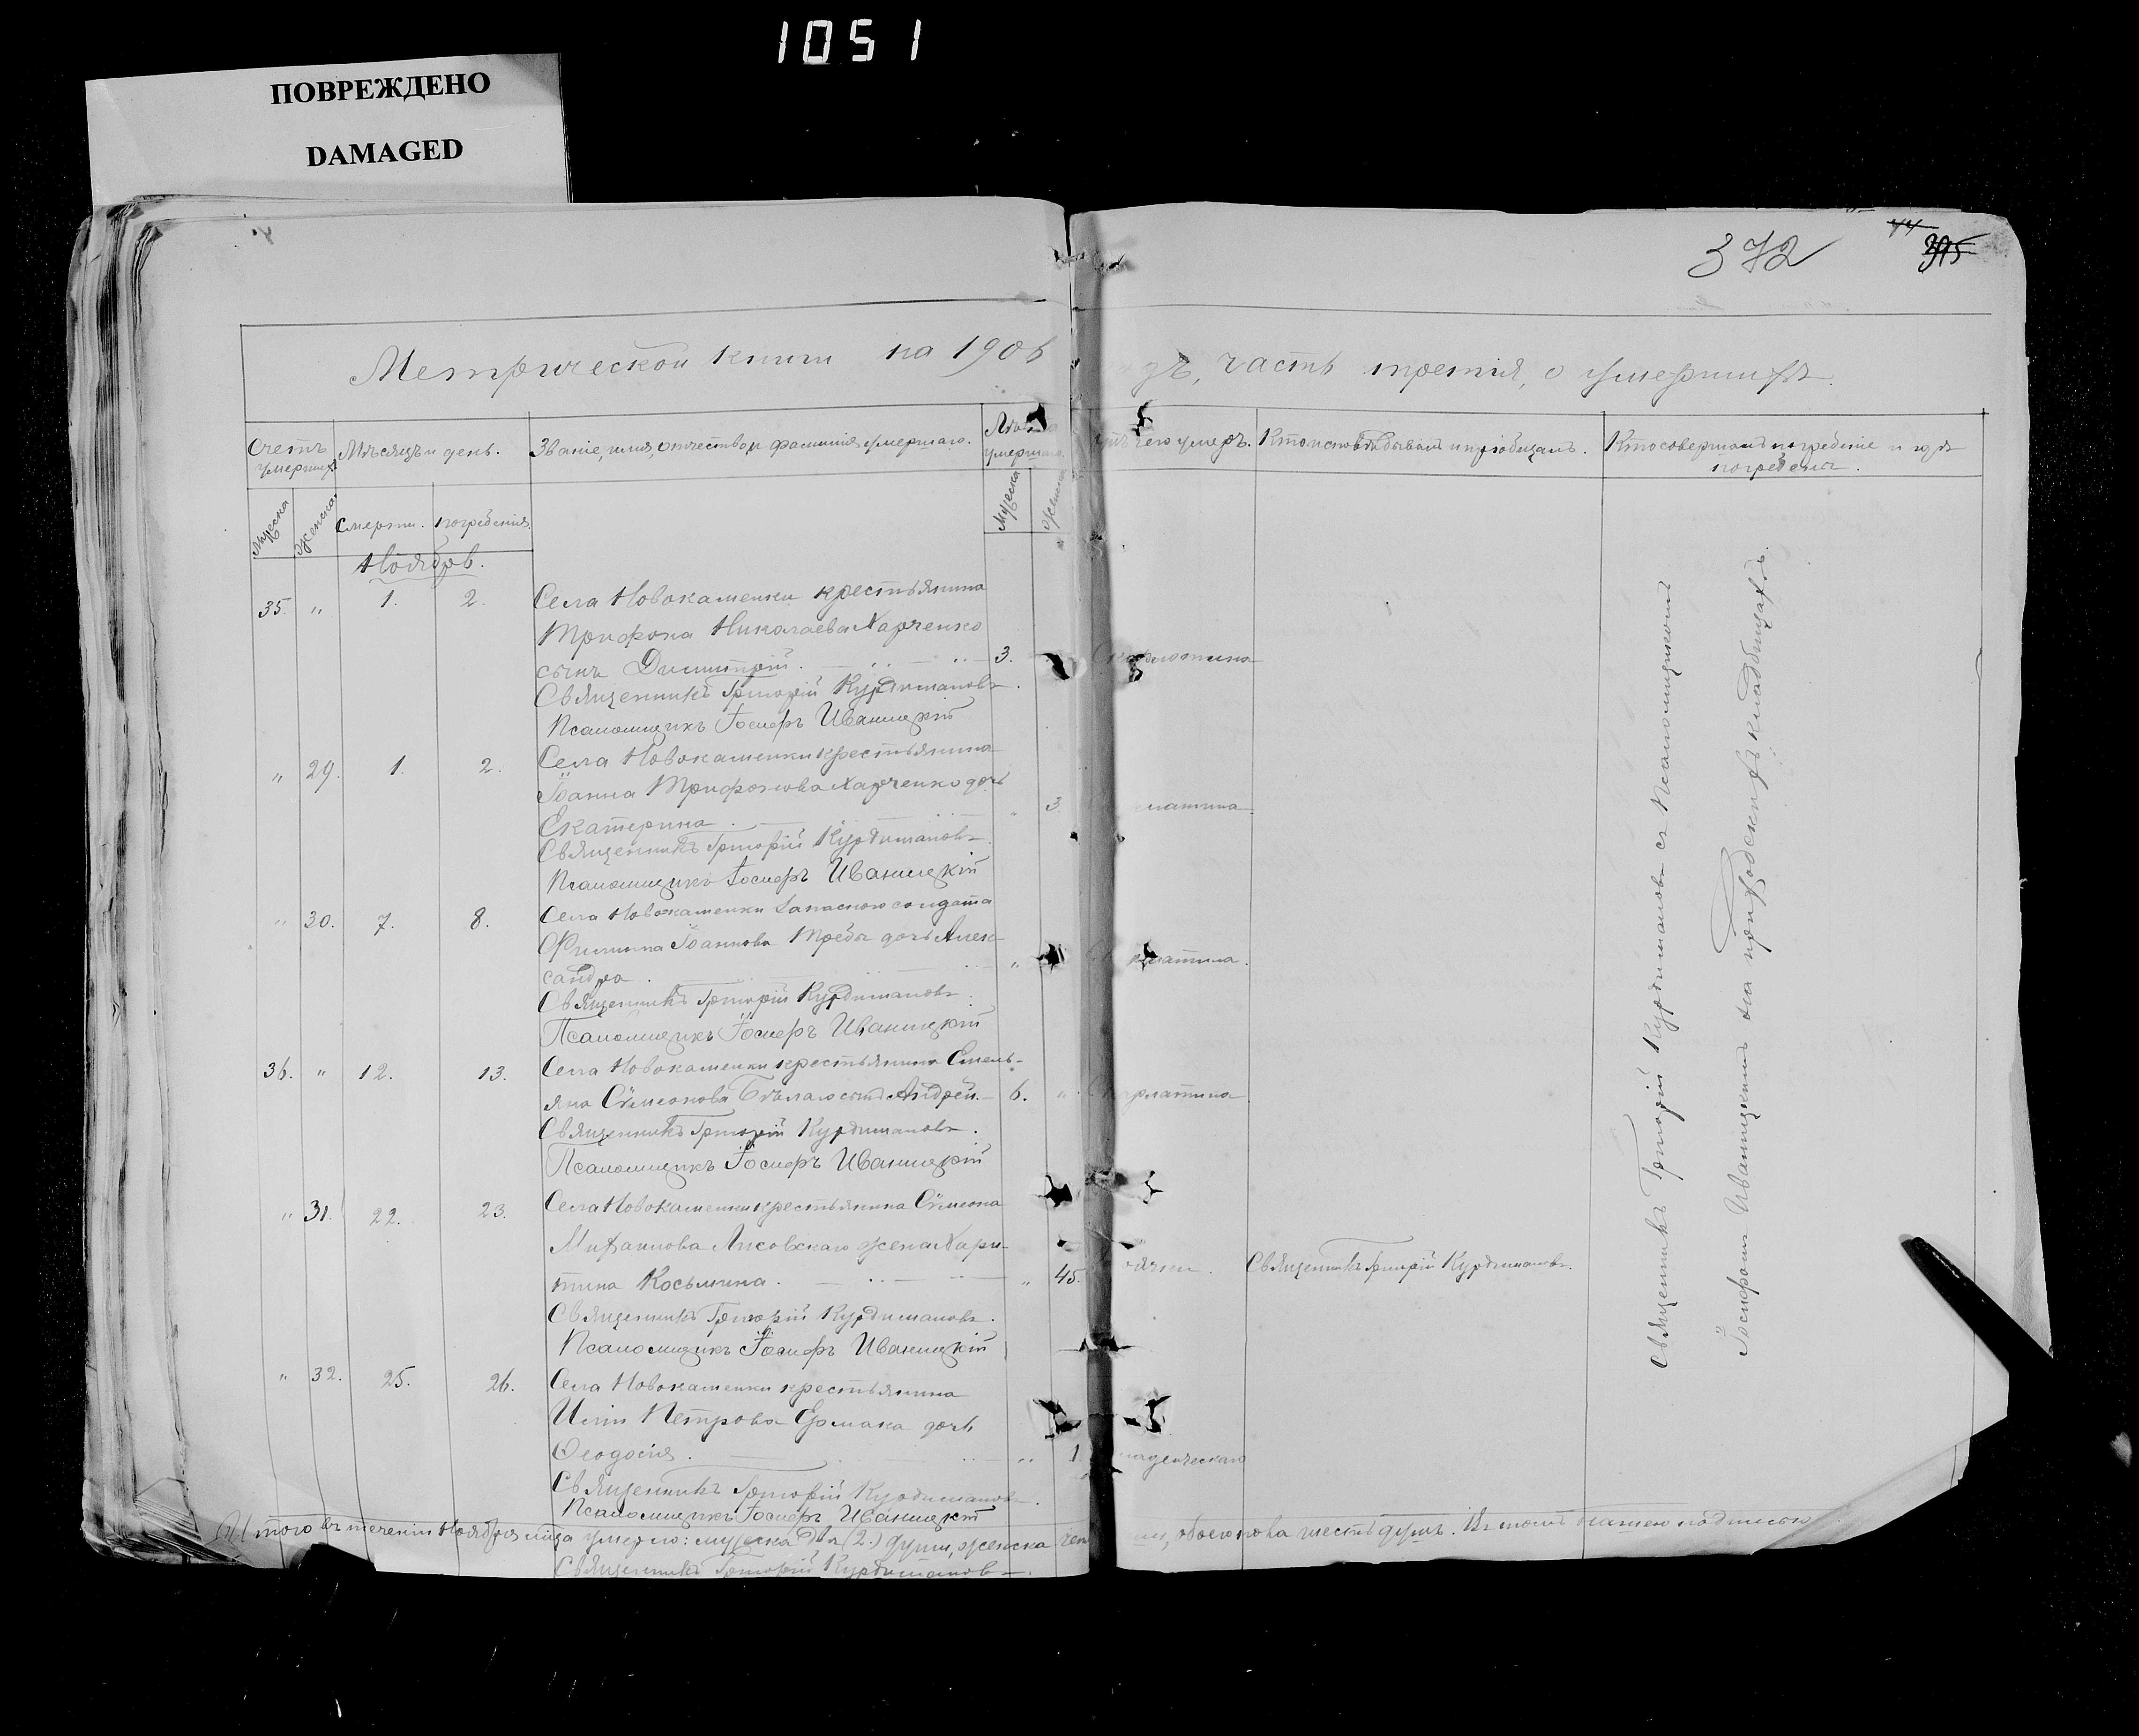 1051
ПОВРЕЖДЕНО
DAMAGED
372
44
395
Метрической книги на 1906
дъ, часть третія, о умершихъ.
Счетъ умершихъ
Мѣсяцъ и день.
Званіе, имя, отчество и фамилія умершаго.
Лѣта умершаго.
отъ чего умеръ.
Кто исповѣдывалъ и пріобщалъ.
Кто совершалъ погребеніе и гдѣ погребены.
Мужеска
Женска
Смерти.
погребенія.
Мужеска
Женска
Ноябрь.
35. " 1. 2. Села Новокаменки крестьянина
Трифона Николаева Харченко
сынъ Димитрій. 3.
Священникъ Григорій Курдимановъ.
Псаломщикъ Іосифъ Иваницкій
" 29. 1. 2. Села Новокаменки крестьянина
Іоанна Трифонова Харченко дочь
Екатерина. " 3. латина
Священникъ Григорій Курдимановъ.
Псаломщикъ Іосифъ Иваницкій
" 30. 7. 8. Села Новокаменки запаснаго солдата
Филиппа Іоаннова дочь Алек-
сандра. " латина.
Священникъ Григорій Курдимановъ.
Псаломщикъ Іосифъ Иваницкій
36. " 12. 13. Села Новокаменки крестьянина Емель-
яна Сѵмеонова Бѣлаго сынъ Андрей. 6. " рлатина
Священникъ Григорій Курдимановъ.
Псаломщикъ Іосифъ Иваницкій
" 31. 22. 23. Села Новокаменки крестьянина Сѵмеона
Михаилова Лисовскаго жена Хари-
тина Косьмина. " 45. Священникъ Григорій Курдимановъ.
Священникъ Григорій Курдимановъ.
Псаломщикъ Іосифъ Иваницкій
" 32. 25. 26. Села Новокаменки крестьянина
Иліи Петрова Ермака дочь
Ѳеодосія. " 1. ладенческаго
Священникъ Григорій Курдимановъ.
Псаломщикъ Іосифъ Иваницкій
Итого въ теченіи Ноября м-ца умерло: мужеска два (2.) души, женска че ри, обоего пола шесть душъ. Въ томъ нашею подписью
Священникъ Григорій Курдимановъ.
Священникъ Григорій Курдимановъ съ Псаломщикомъ
Іосифомъ Иваницкимъ на приходскихъ кладбищахъ.